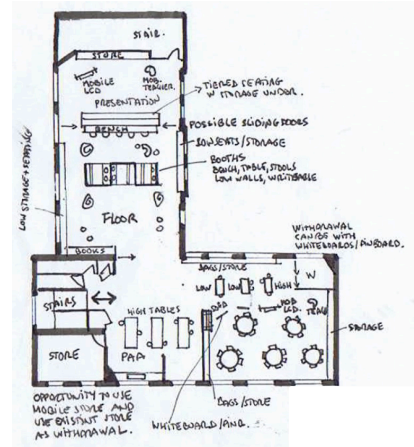 STAIR.
STORE
MOBILE
LCD
MOB.
TEACHER.
PRESENTATION
TIERED SEATING
W STORAGE UNDER.
BENCH
POSSIBLE SLIDING DOORS
LOW SEATS/STORAGE
BOOTHS
BENCH, TABLE, STOOLS
LOW WALLS, WRITEABLE
LOW STORAGE + SEATING
FLOOR
BOOKS
WITHDRAWAL
CAN BE WITH
WHITEBOARDS/PINBOARD.
BAGS/STORE
W
LOW
LOW
HIGH
STAIRS
HIGH TABLES
MOB
LCD.
STORAGE
STORE
BAGS/STORE
WHITEBOARD/PINB.
OPPORTUNITY TO USE
MOBILE STORE AND
USE EXISTING STORE
AS WITHDRAWAL.